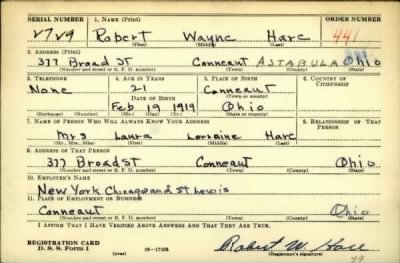 SERIAL NUMBER 1. NAME (Print) ORDER NUMBER
V7V9 Robert Wayne Hare 441
(First) (Middle) (Last)
2. ADDRESS (Print)
377 Broad St Conneaut ASTABULA Ohio
(Number and street or R. F. D. number) (Town) (County) (State)
3. TELEPHONE 4. AGE IN YEARS 5. PLACE OF BIRTH 6. COUNTRY OF CITIZENSHIP
None 21 Conneaut
DATE OF BIRTH (Town or county)
Feb 19 1919 Ohio
(Exchange) (Number) (Mo.) (Day) (Yr.) (State or country)
7. NAME OF PERSON WHO WILL ALWAYS KNOW YOUR ADDRESS 8. RELATIONSHIP OF THAT PERSON
Mrs Laura Lorraine Hare
(Mr., Mrs., Miss) (First) (Middle) (Last)
9. ADDRESS OF THAT PERSON
377 Broad St Conneaut Ohio
(Number and street or R. F. D. number) (Town) (County) (State)
10. EMPLOYER'S NAME
New York Chicago and St Louis
11. PLACE OF EMPLOYMENT OR BUSINESS
Conneaut Ohio
(Number and street or R. F. D. number) (Town) (County) (State)
I AFFIRM THAT I HAVE VERIFIED ABOVE ANSWERS AND THAT THEY ARE TRUE.
REGISTRATION CARD
D. S. S. Form 1 (over) 16-17105 Robert W. Hare
(Registrant's signature)